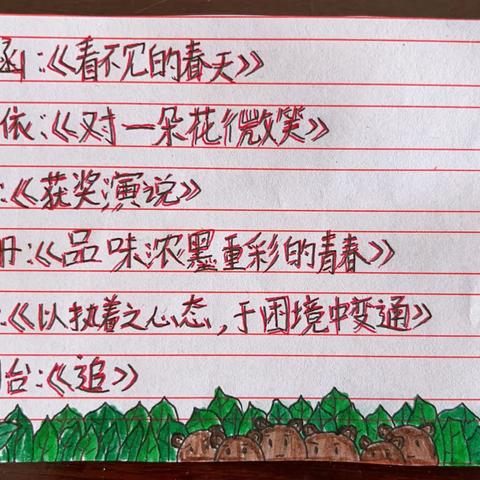 涵:《看不见的春天》
依:《对一朵花微笑》
:《获奖演说》
丹:《品味浓墨重彩的青春》
:《以执着之心态,于困境中变通》
台:《追》